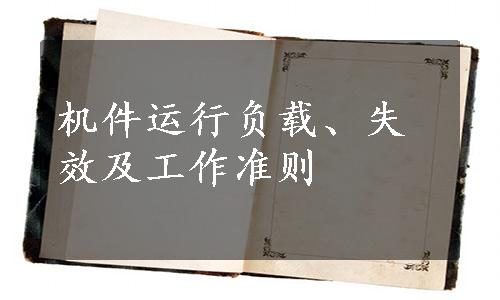 机件运行负载、失
效及工作准则